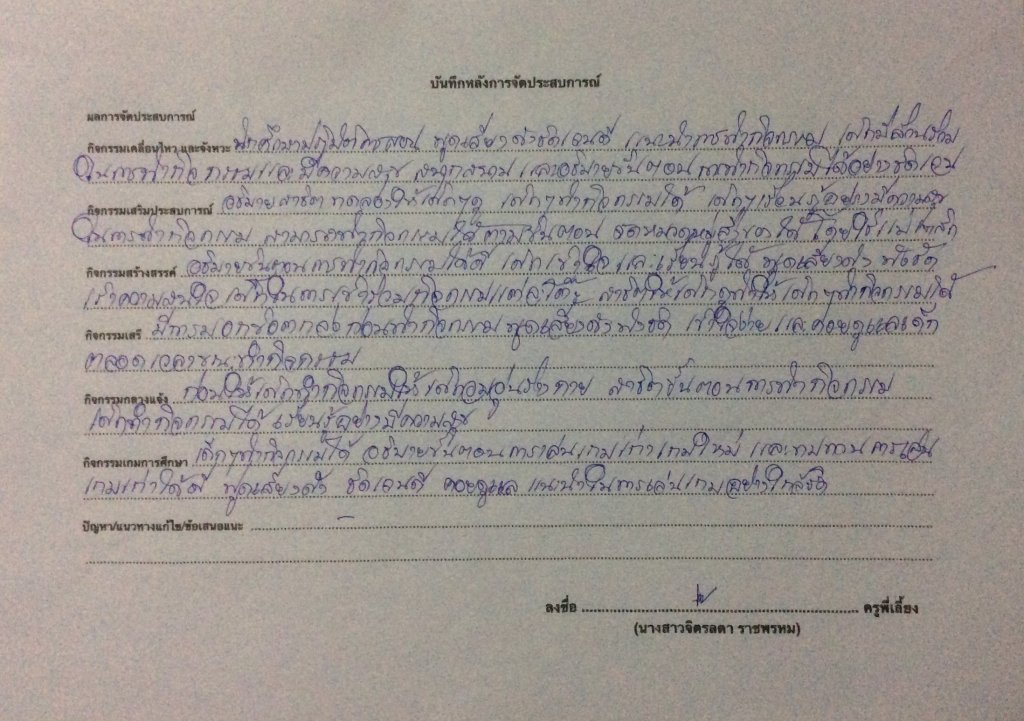 บันทึกหลังการจัดประสบการณ์
ผลการจัดประสบการณ์
กิจกรรมเคลื่อนไหว และจังหวะ นักศึกษาปฏิบัติการสอน พูดเสียงดังชัดเจนดี แนะนำการทำกิจกรรม เด็กมีส่วนร่วม
ในการทำกิจกรรมและมีความสุข สนุกสนาน และอธิบายขั้นตอนการทำกิจกรรมได้อย่างชัดเจน
กิจกรรมเสริมประสบการณ์ อธิบายสาธิตทดลองให้เด็กๆดู เด็กๆทำกิจกรรมได้ เด็กๆเรียนรู้อย่างมีความสุข
ในการทำกิจกรรม สามารถทำกิจกรรมได้ตามขั้นตอน ได้ โดยใช้แม่เหล็ก
กิจกรรมสร้างสรรค์ อธิบายขั้นตอนการทำกิจกรรมได้ดี เด็กเข้าใจและเรียนรู้ได้ พูดเสียงดังฟังชัด
เร้าความสนใจ เด็กในการเข้าร่วมกิจกรรม สาธิตให้เด็กดู ให้เด็กๆทำกิจกรรมได้
กิจกรรมเสรี มีการบอกข้อตกลงก่อนทำกิจกรรม พูดเสียงดังฟังชัด เข้าใจง่าย และคอยดูแลเด็ก
ตลอดเวลาขณะทำกิจกรรม
กิจกรรมกลางแจ้ง ก่อนให้เด็กทำกิจกรรมให้เด็กอบอุ่นร่างกาย สาธิตขั้นตอนการทำกิจกรรม
เด็กทำกิจกรรมได้ เรียนรู้อย่างมีความสุข
กิจกรรมเกมการศึกษา เด็กๆทำกิจกรรมได้ อธิบายขั้นตอนการเล่นเกมเก่าเกมใหม่ และทบทวนการเล่น
เกมเก่าได้ดี พูดเสียงดัง ชัดเจนดี คอยดูแล แนะนำในการเล่นเกมอย่างใกล้ชิด
ปัญหา/แนวทางแก้ไข/ข้อเสนอแนะ -
ลงชื่อ ครูพี่เลี้ยง
(นางสาวจิตรลดา ราชพรหม)